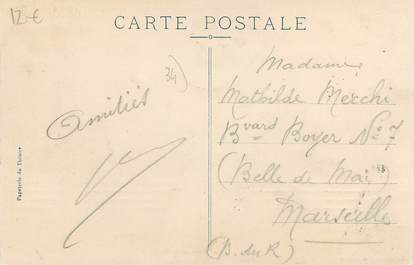 12-€
CARTE POSTALE
34)
Amitiés
Madame
Mathilde Merchi
Bvard Boyer No 7
(Belle de Mai)
Marseille
(B. du R)